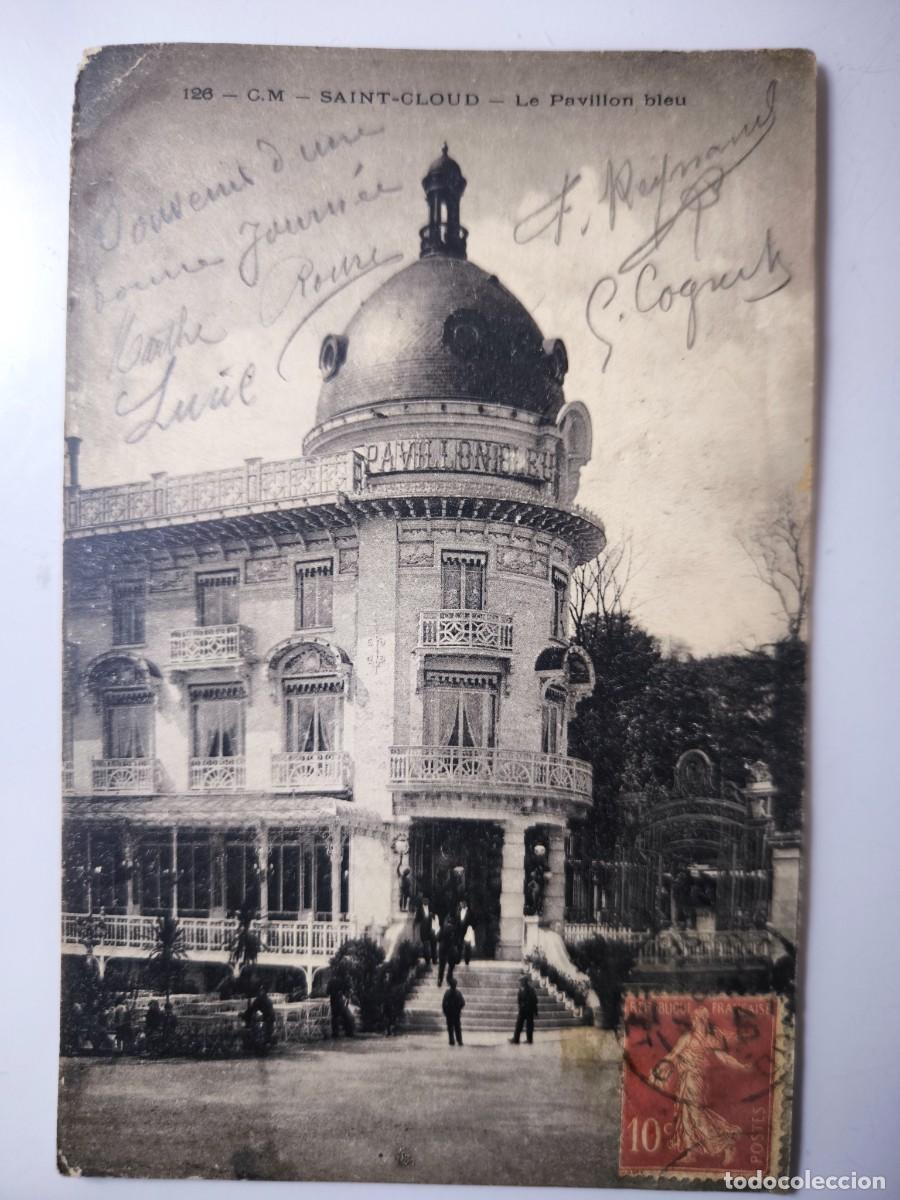 126 – C.M – SAINT-CLOUD – Le Pavillon bleu
Souvenir d'une
bonne journée
Marthe Roure
F. Reynaud
G. Coquert
PAVILLON BLEU
REPUBLIQUE FRANÇAISE
10c
POSTES
todocoleccion